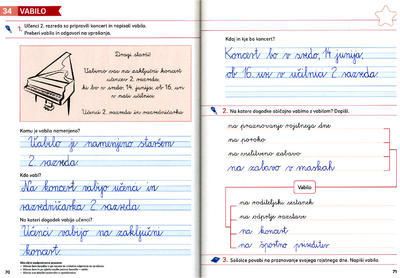 34 VABILO
1. Učenci 2. razreda so pripravili koncert in napisali vabilo.
Preberi vabilo in odgovori na vprašanja.
Dragi starši!
Vabimo vas na zaključni koncert
učencev 2. razreda,
ki bo v sredo, 14. junija, ob 16. uri
v naši učilnici.
Učenci 2. razreda in razredničarka
Komu je vabilo namenjeno?
Vabilo je namenjeno staršem
2. razreda
Kdo vabi?
Na koncert vabijo učenci in
razredničarka 2. razreda
Na kateri dogodek vabijo učenci?
Učenci vabijo na zaključni
koncert
70
Kdaj in kje bo koncert?
Koncert bo v sredo, 14. junija,
ob 16. uri v učilnici 2. razreda
2. Na katere dogodke običajno vabimo z vabilom? Dopiši.
na praznovanje rojstnega dne
na poroko
na
na zabavo v maskah
Vabilo
na roditeljski sestanek
na odprtje razstave
na koncert
na športno prireditev
3. Sošolce povabi na praznovanje svojega rojstnega dne. Napiši vabilo.
71